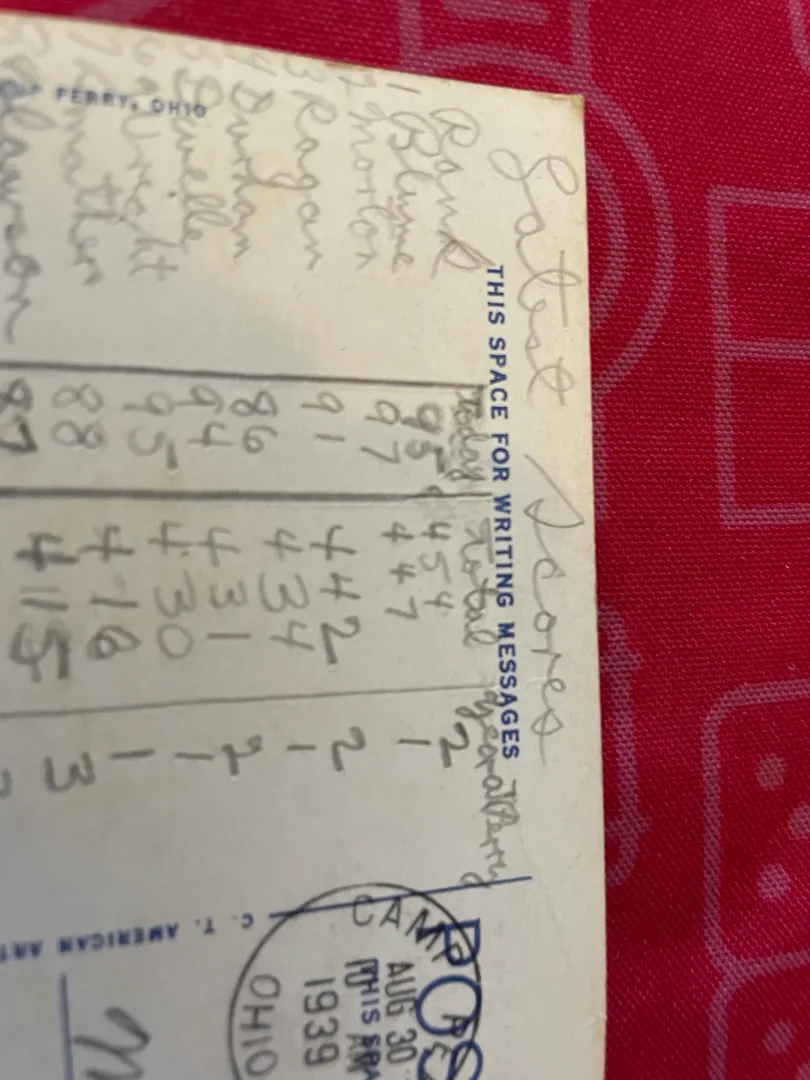 Latest Scores
THIS SPACE FOR WRITING MESSAGES
Rank Today Total Year at Perry
1 Blume 95 454 2
2 Morton 97 447 1
3 Ragan 91 442 2
4 Durham 86 434 1
5 94 431 2
6 Wright 95 430 1
7 88 416 1
8 Lawson 87 415 3
PERRY, OHIO
C. T. AMERICAN ART
POS
THIS SPA
CAMP PE
AUG 30
10 AM
1939
OHIO